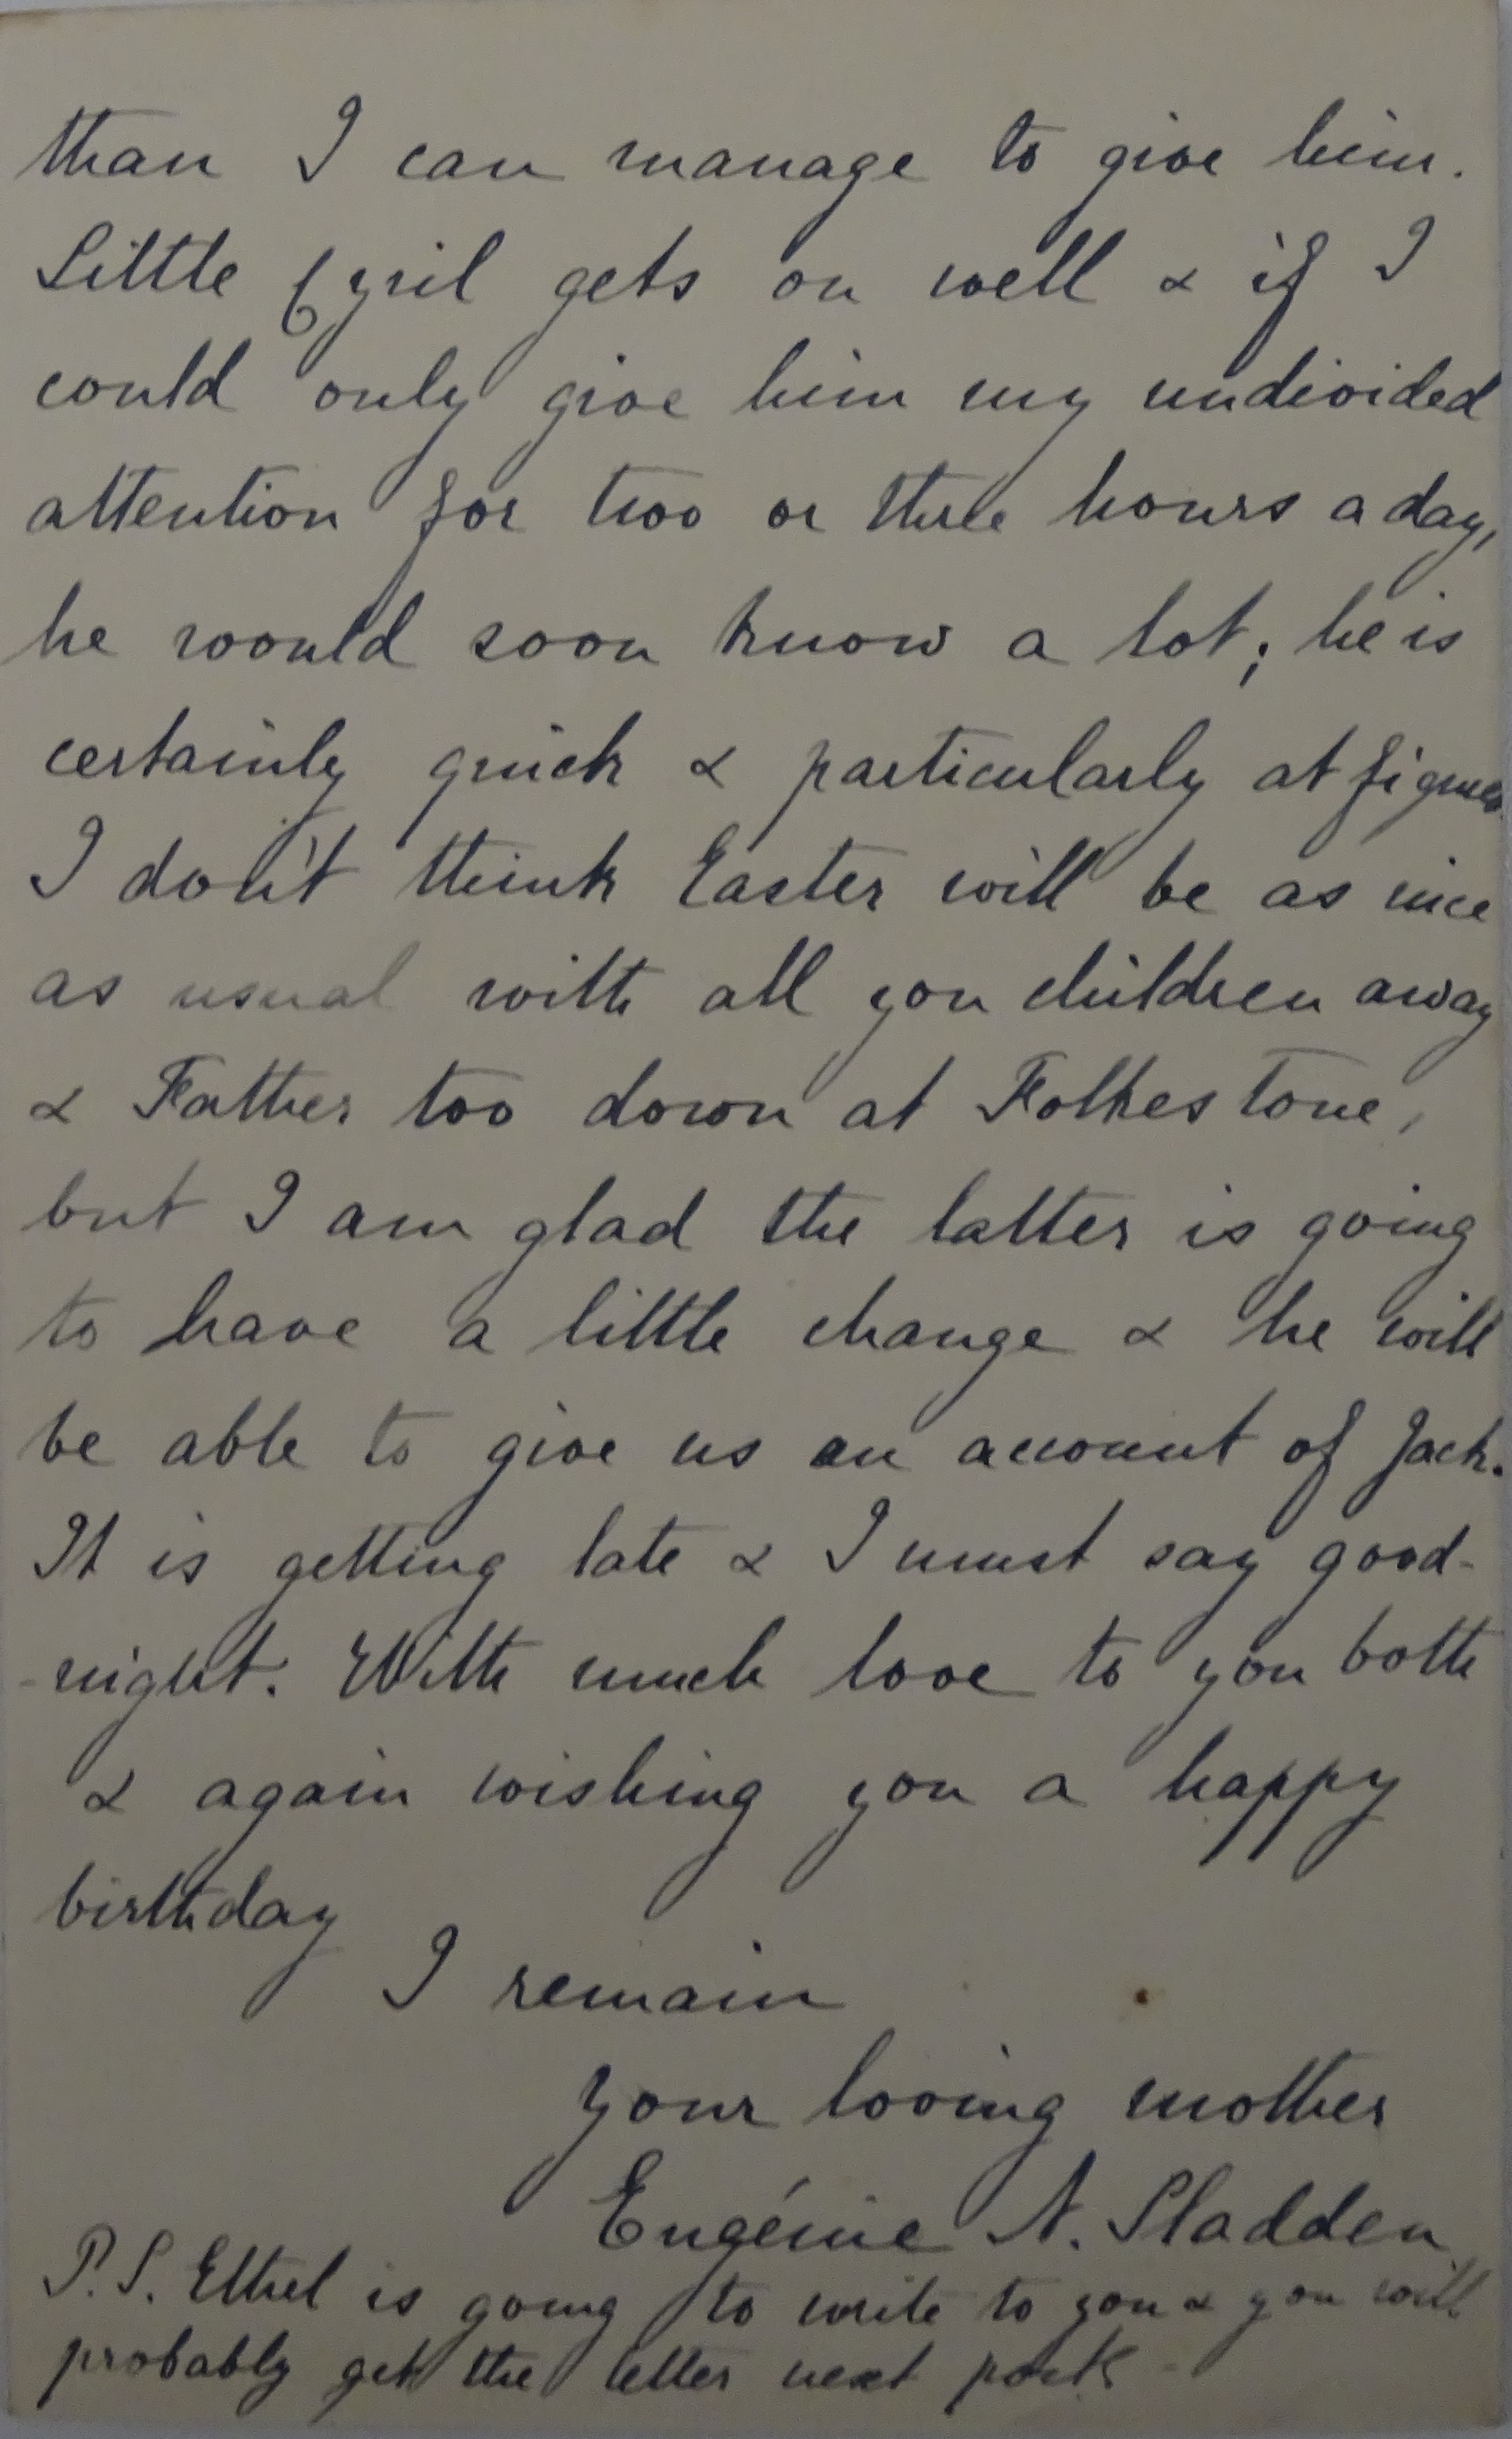 than I can manage to give him.
Little Cyril gets on well & if I
could only give him my undivided
attention for two or three hours a day,
he would soon know a lot; he is
certainly quick & particularly at figures.
I don't think Easter will be as nice
as usual with all you children away
& Father too down at Folkestone,
but I am glad the latter is going
to have a little change & he will
be able to give us an account of Jack.
It is getting late & I must say good-
-night. With much love to you both
& again wishing you a happy
birthday
I remain
your loving mother
Eugénie N. Sladden
P.S. Ethel is going to write to you & you will
probably get the letter next post